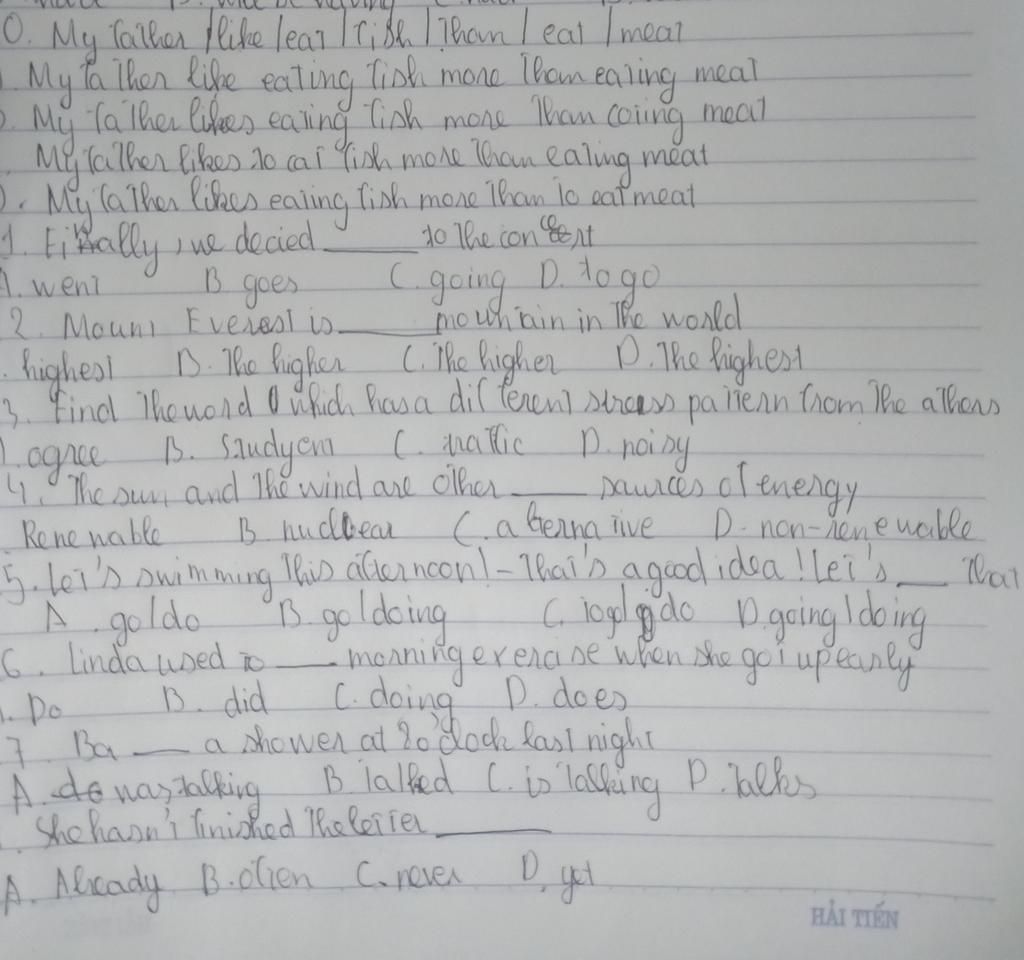 0. My father / like / eat / fish / than / eat / meat
My father like eating fish more than eating meat
My father likes eating fish more than eating meat
My father likes to eat fish more than eating meat
My father likes eating fish more than to eat meat
1. Finally, we decied ______ to the concert
A. went B. goes C. going D. to go
2. Mount Everest is ______ mountain in the world
. highest B. The higher C. The higher D. The highest
3. Find the word which has a different stress pattern from the athors
. agree B. C. traffic D. noisy
4. The sun and the wind are other ______ sources of energy
Renewable B. nuclear C. alternative D. non-renewable
5. Let's swimming this afternoon! - That's a good idea! Let's ____ that
A. go/do B. go/doing C. do D. going/doing
6. Linda used to ______ morning exercise when she got up early
. Do B. did C. doing D. does
7. Ba ____ a shower at 20 o'clock last night
A. was talking B. talked C. is talking D. talks
. She hasn't finished the letter ________
A. Already B. often C. never D. yet
HẢI TIẾN